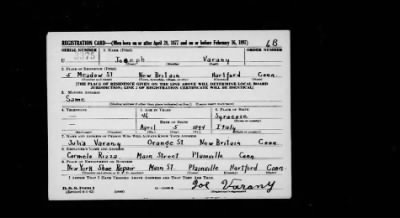 REGISTRATION CARD—(Men born on or after April 28, 1877 and on or before February 16, 1897)
SERIAL NUMBER 1. NAME (Print) ORDER NUMBER
Joseph Varany
2. PLACE OF RESIDENCE (Print)
5 Meadow St New Britain Hartford Conn.
[THE PLACE OF RESIDENCE GIVEN ON THE LINE ABOVE WILL DETERMINE LOCAL BOARD
JURISDICTION; LINE 2 OF REGISTRATION CERTIFICATE WILL BE IDENTICAL]
3. MAILING ADDRESS
Same
4. TELEPHONE 5. AGE IN YEARS 6. PLACE OF BIRTH
Syracusa
DATE OF BIRTH
April 5 1894 Italy
7. NAME AND ADDRESS OF PERSON WHO WILL ALWAYS KNOW YOUR ADDRESS
Julia Varany Orange St New Britain Conn
8. EMPLOYER'S NAME AND ADDRESS
Carmelo Rizza Main Street Plainville Conn
9. PLACE OF EMPLOYMENT OR BUSINESS
New York Shoe Repair Main St. Plainville Hartford Conn
I AFFIRM THAT I HAVE VERIFIED ABOVE ANSWERS AND THAT THEY ARE TRUE.
D. S. S. Form 1
Joe Varany